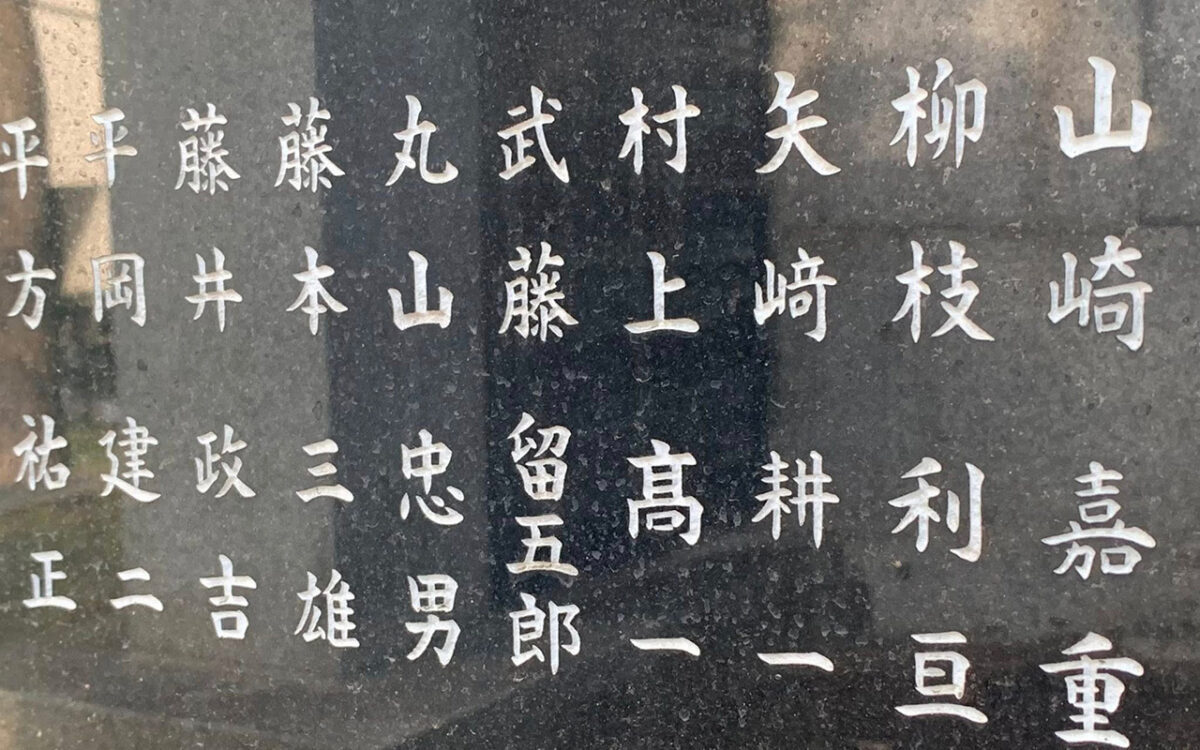 山崎嘉重
柳枝利亘
矢﨑耕一
村上髙一
武藤留五郎
丸山忠男
藤本三雄
藤井政吉
平岡建二
平方祐正